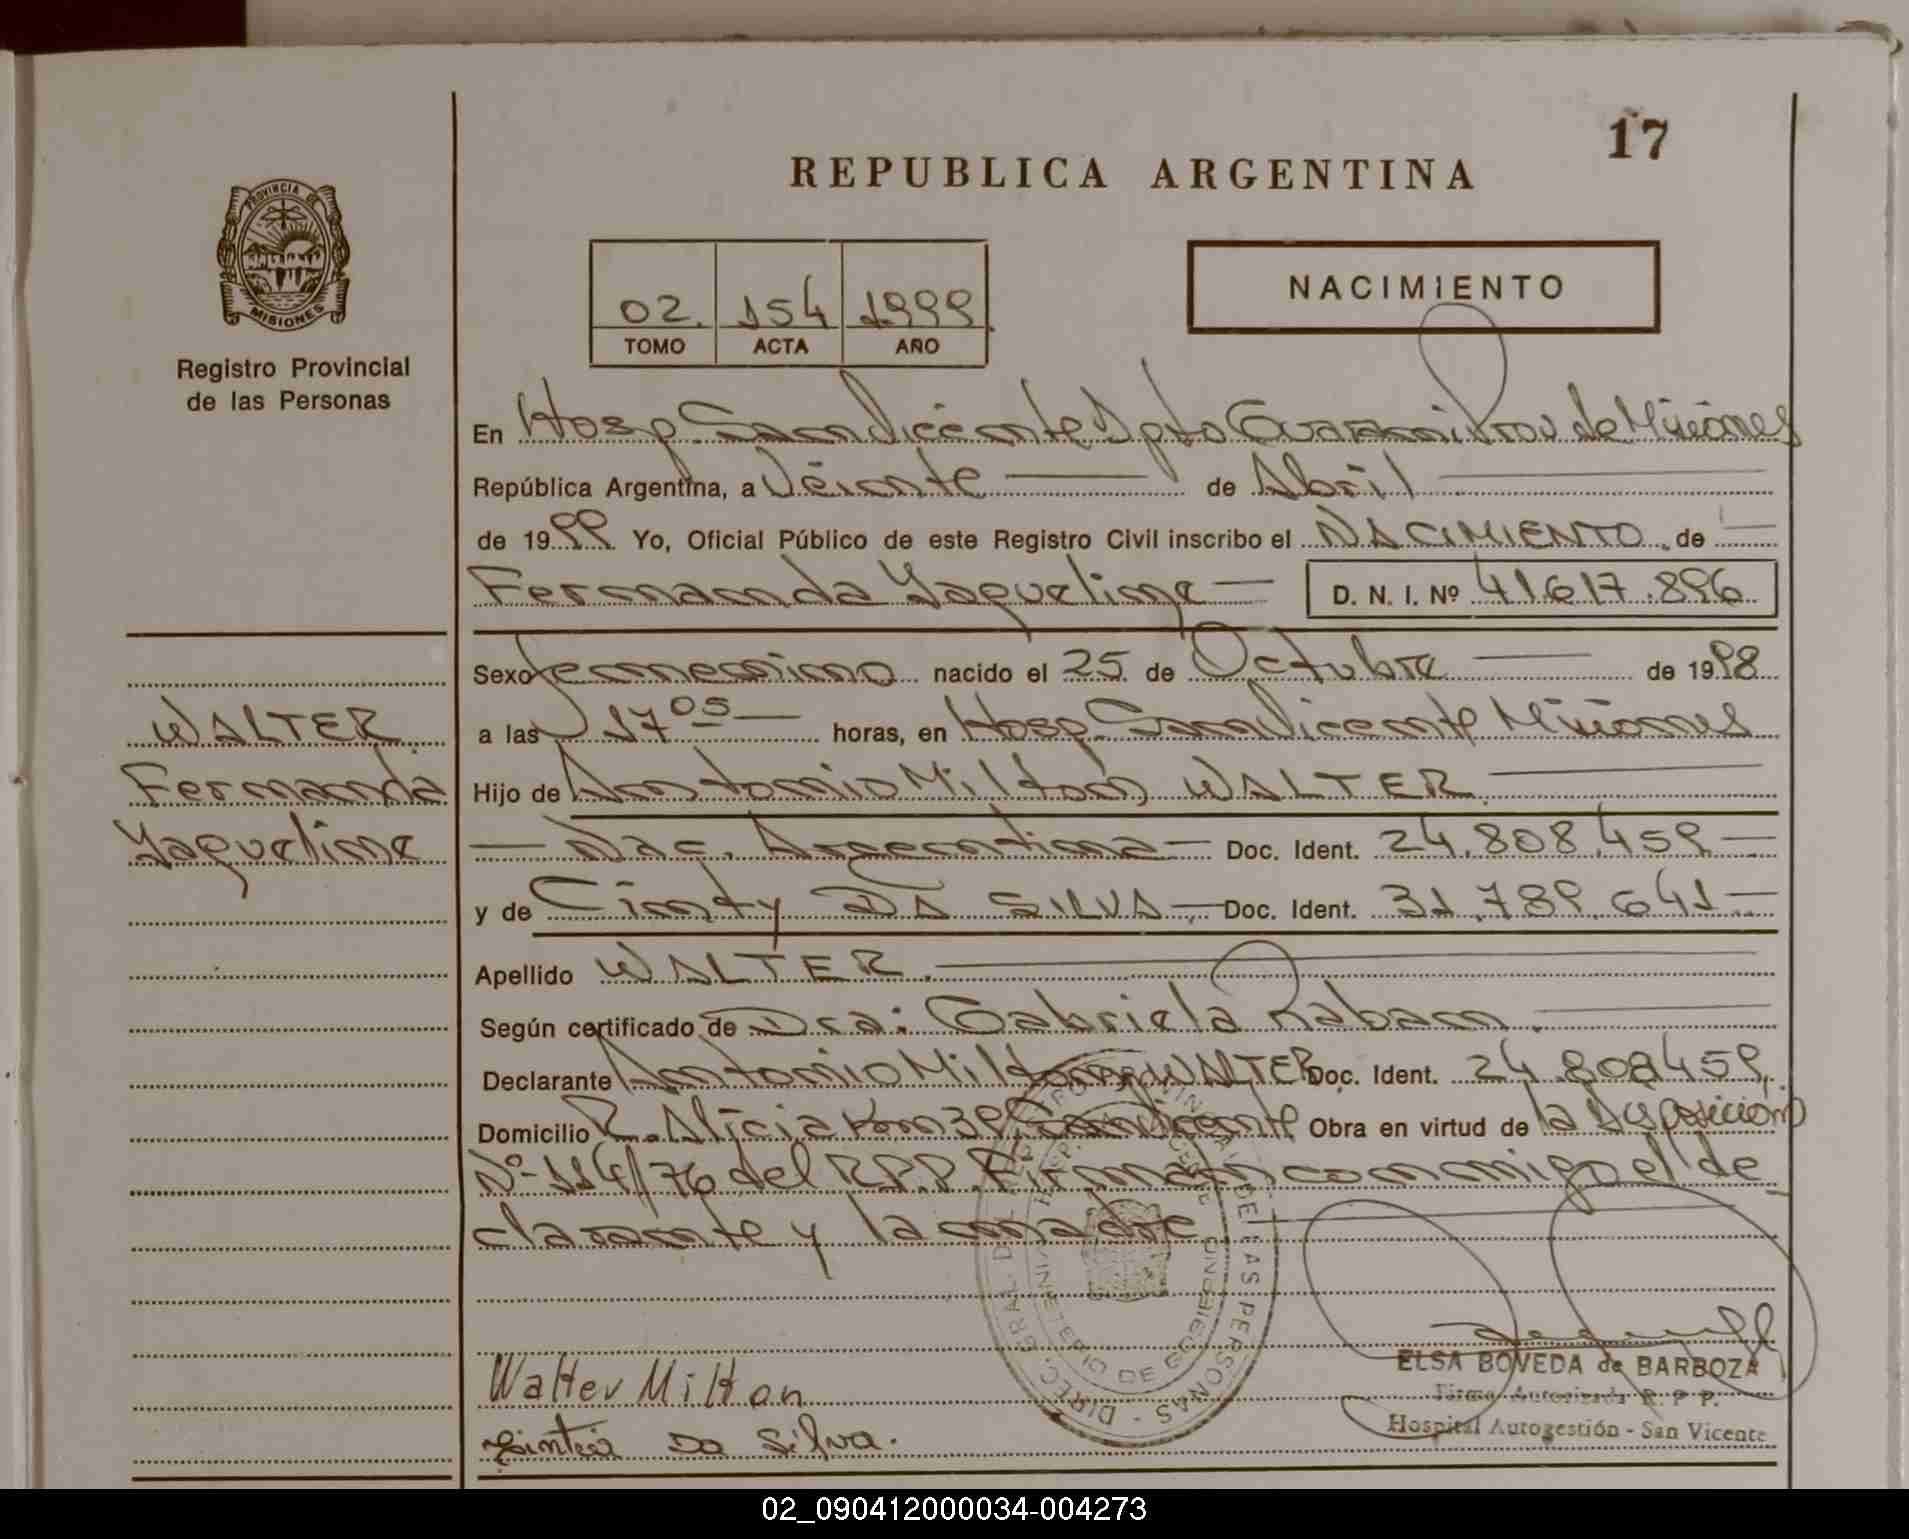 17
REPUBLICA ARGENTINA
PROVINCIA DE
MISIONES
Registro Provincial
de las Personas
02. 154 1999.
TOMO ACTA AÑO
NACIMIENTO
En Hosp. San Vicente Dpto Guarani Prov de Misiones
República Argentina, a Veinte de Abril
de 1999 Yo, Oficial Público de este Registro Civil inscribo el NACIMIENTO de
Fernanda Yaqueline D. N. I. Nº 41.617.896
Sexo femenino nacido el 25 de Octubre de 1998
a las 17 05 horas, en Hosp. San Vicente Misiones
Hijo de Antonio Milton WALTER
Nac. Argentina Doc. Ident. 24.808.459
y de Cinty DA SILVA Doc. Ident. 31.789.641
Apellido WALTER.
Según certificado de Dra: Gabriela Raban.
Declarante Antonio Milton WALTER Doc. Ident. 24.808459
Domicilio R. Alicia Km 39 San Vicente Obra en virtud de la Disposición
Nº 114/76 del R.P.P. Firman conmigo el de
clarante y la madre
WALTER
Fernanda
Yaqueline
DIREC. GRAL. DEL REG. PROVINCIAL DE LAS PERSONAS
MINISTERIO DE GOBIERNO
Walter Milton
Da Silva.
ELSA BOVEDA de BARBOZA
Firma Autorizada R. P P.
Hospital Autogestión - San Vicente
02_090412000034-004273